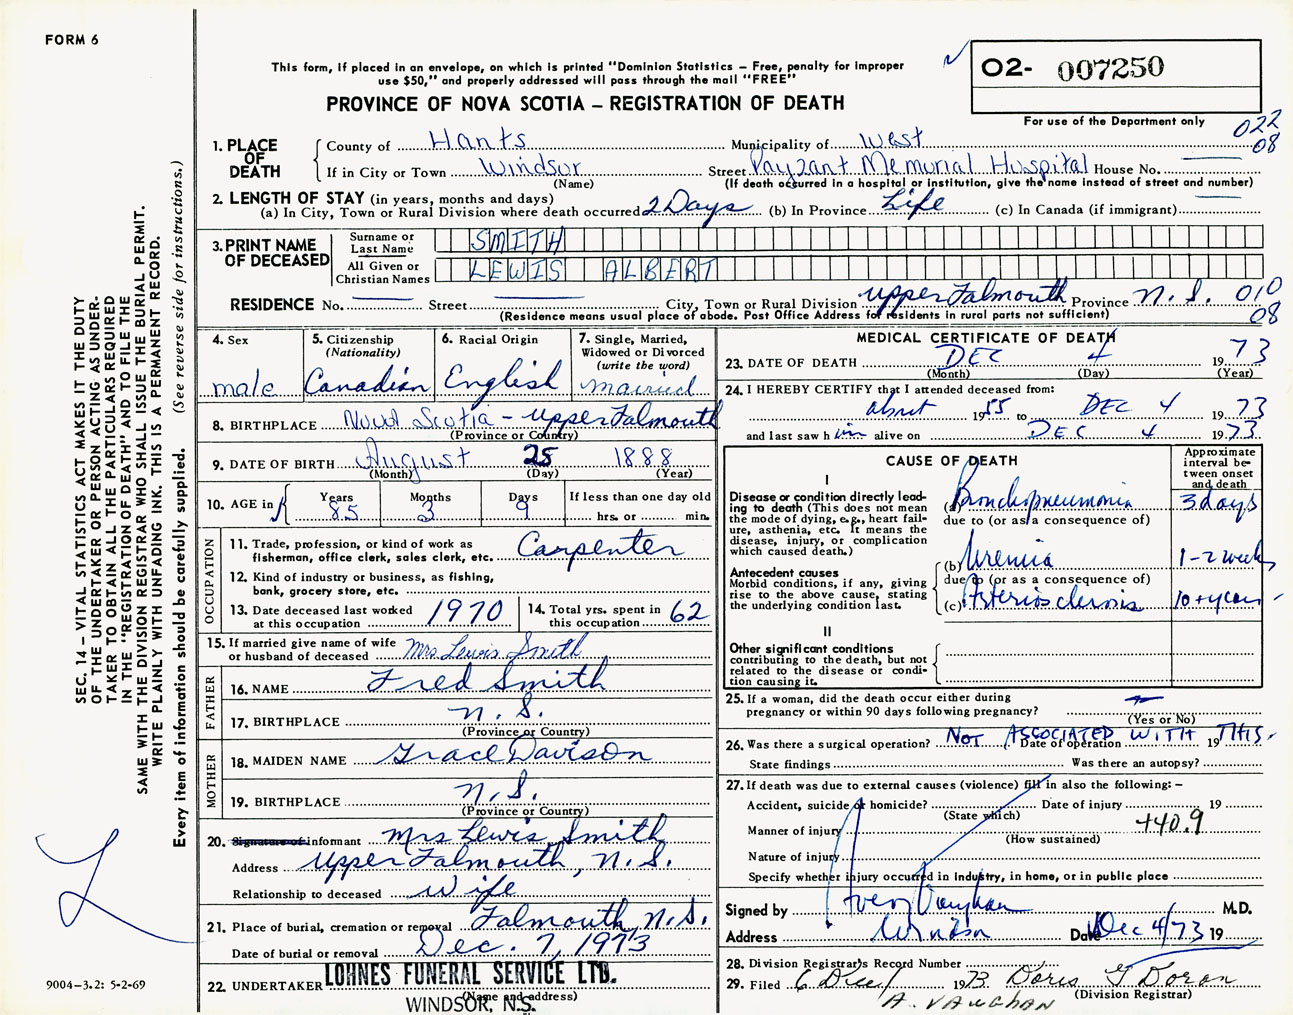 FORM 6
This form, if placed in an envelope, on which is printed "Dominion Statistics — Free, penalty for improper
use $50," and properly addressed will pass through the mail "FREE"
PROVINCE OF NOVA SCOTIA — REGISTRATION OF DEATH
02- 007250
For use of the Department only
022
08
1. PLACE OF DEATH
County of Hants Municipality of West
If in City or Town Windsor Street Payzant Memorial Hospital House No.
(Name) (If death occurred in a hospital or institution, give the name instead of street and number)
2. LENGTH OF STAY (in years, months and days)
(a) In City, Town or Rural Division where death occurred 2 Days (b) In Province Life (c) In Canada (if immigrant)
3. PRINT NAME OF DECEASED
Surname or Last Name SMITH
All Given or Christian Names LEWIS ALBERT
RESIDENCE No. Street City, Town or Rural Division Upper Falmouth Province N.S. 010
08
(Residence means usual place of abode. Post Office Address for residents in rural parts not sufficient)
4. Sex
male
5. Citizenship
(Nationality)
Canadian
6. Racial Origin
English
7. Single, Married,
Widowed or Divorced
(write the word)
married
8. BIRTHPLACE Nova Scotia - Upper Falmouth
(Province or Country)
9. DATE OF BIRTH August 25 1888
(Month) (Day) (Year)
10. AGE in
Years 85
Months 3
Days 9
If less than one day old
hrs. or min.
OCCUPATION
11. Trade, profession, or kind of work as
fisherman, office clerk, sales clerk, etc. Carpenter
12. Kind of industry or business, as fishing,
bank, grocery store, etc.
13. Date deceased last worked
at this occupation 1970
14. Total yrs. spent in
this occupation 62
15. If married give name of wife
or husband of deceased Mrs. Lewis Smith
FATHER
16. NAME Fred Smith
17. BIRTHPLACE N.S.
(Province or Country)
MOTHER
18. MAIDEN NAME Grace Davison
19. BIRTHPLACE N.S.
(Province or Country)
20. Signature of informant Mrs Lewis Smith
Address Upper Falmouth, N.S.
Relationship to deceased Wife
21. Place of burial, cremation or removal Falmouth, N.S.
Date of burial or removal Dec. 7, 1973
22. UNDERTAKER LOHNES FUNERAL SERVICE LTD.
(Name and address)
WINDSOR, N.S.
MEDICAL CERTIFICATE OF DEATH
23. DATE OF DEATH DEC 4 1973
(Month) (Day) (Year)
24. I HEREBY CERTIFY that I attended deceased from:
about 1955 to DEC 4 1973
and last saw him alive on DEC 4 1973
CAUSE OF DEATH
Approximate
interval be-
tween onset
and death
I
Disease or condition directly lead-
ing to death (This does not mean
the mode of dying, e.g., heart fail-
ure, asthenia, etc. It means the
disease, injury, or complication
which caused death.)
(a) Bronchopneumonia 3 days
due to (or as a consequence of)
Antecedent causes
Morbid conditions, if any, giving
rise to the above cause, stating
the underlying condition last.
(b) Uremia 1-2 weeks
due to (or as a consequence of)
(c) Arteriosclerosis 10+ years
II
Other significant conditions
contributing to the death, but not
related to the disease or condi-
tion causing it.
25. If a woman, did the death occur either during
pregnancy or within 90 days following pregnancy?
(Yes or No)
26. Was there a surgical operation? NOT ASSOCIATED WITH THIS. Date of operation 19
State findings Was there an autopsy?
27. If death was due to external causes (violence) fill in also the following: —
Accident, suicide or homicide? Date of injury 19
(State which)
Manner of injury 440.9
(How sustained)
Nature of injury
Specify whether injury occurred in industry, in home, or in public place
Signed by Avery Vaughan M.D.
Address Windsor Date Dec 4/73 19
28. Division Registrar's Record Number
29. Filed 6 Dec 1973 Doris G Doran
(Division Registrar)
A. VAUGHAN
SEC. 14 — VITAL STATISTICS ACT MAKES IT THE DUTY
OF THE UNDERTAKER OR PERSON ACTING AS UNDER-
TAKER TO OBTAIN ALL THE PARTICULARS REQUIRED
IN THE "REGISTRATION OF DEATH" AND TO FILE THE
SAME WITH THE DIVISION REGISTRAR WHO SHALL ISSUE THE BURIAL PERMIT.
WRITE PLAINLY WITH UNFADING INK. THIS IS A PERMANENT RECORD.
Every item of information should be carefully supplied. (See reverse side for instructions.)
9004-3.2: 5-2-69